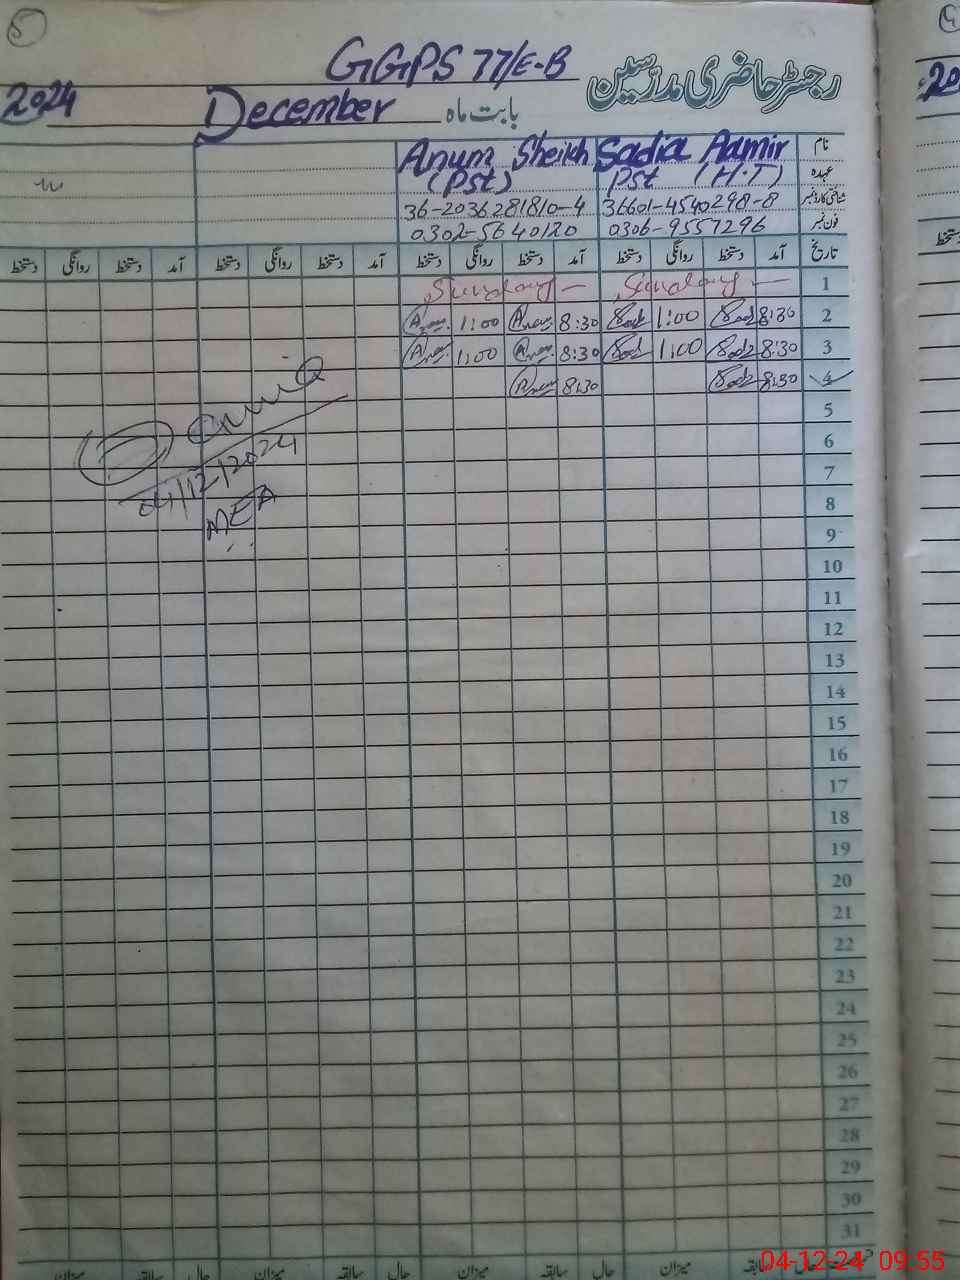 5
GGPS 77/E-B
رجسٹر حاضری مدرسین
بابت ماہ December 2024
نام Sadia Aamir Anum Sheikh
عہدہ Pst (H.T) (Pst)
شناختی کارڈ نمبر 36601-4540298-8 36-2036281810-4
فون نمبر 0306-9557296 0302-5640120
تاریخ آمد دستخط روانگی دستخط آمد دستخط روانگی دستخط آمد دستخط روانگی دستخط آمد دستخط روانگی دستخط
1 Sunday — Sunday —
2 8:30 Sadi 1:00 Sadi 8:30 Anum 1:00 Anum
3 8:30 Sadi 1:00 Sadi 8:30 Anum 1:00 Anum
4 8:30 Sadi 8:30 Anum
5
6
7
8
9
10
11
12
13
14
15
16
17
18
19
20
21
22
23
24
25
26
27
28
29
30
31
04/12/2024
MEA
سابقہ حال میزان سابقہ حال میزان سابقہ حال میزان سابقہ حال میزان
04-12-24 09:55